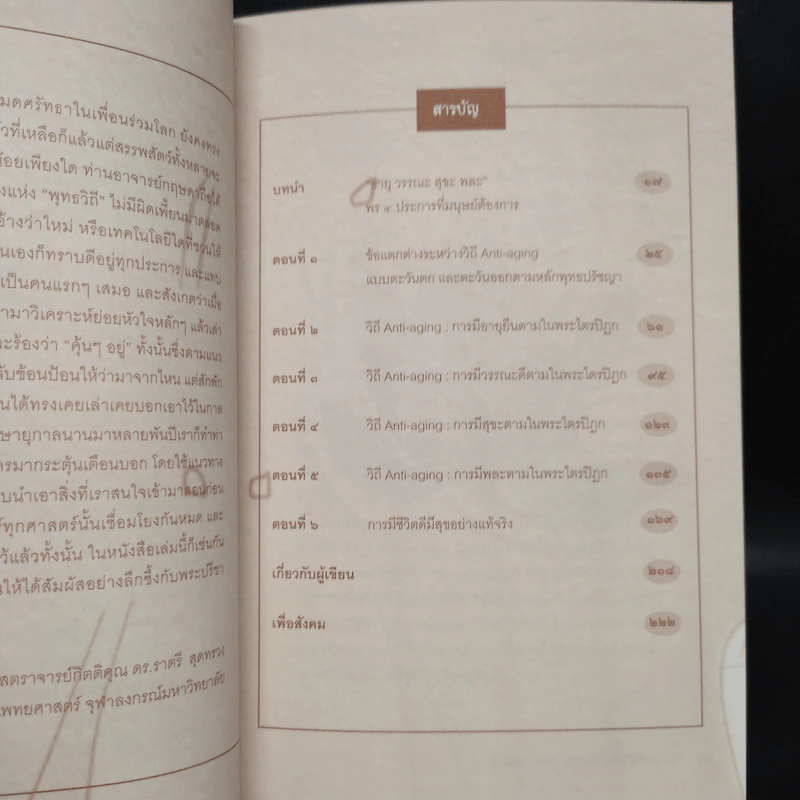 มดศรัทธาในเพื่อนร่วมโลก ยังคงทรง
ที่เหลือก็แล้วแต่สรรพสัตว์ทั้งหลายจะ
น้อยเพียงใด ท่านอาจารย์กฤษดาถือได้
แห่ง "พุทธวิถี" ไม่มีผิดเพี้ยนมาตลอด
อ้างว่าใหม่ หรือเทคโนโลยีใดที่ชวนให้
นเองก็ทราบดีอยู่ทุกประการ และแทบ
เป็นคนแรกๆ เสมอ และสังเกตว่าเมื่อ
ามาวิเคราะห์ย่อยหัวใจหลักๆ แล้วเล่า
ะร้องว่า "คุ้นๆ อยู่" ทั้งนั้นซึ่งตามแนว
ับซ้อนป้อนให้ว่ามาจากไหน แต่สักพัก
นได้ทรงเคยเล่าเคยบอกเอาไว้ในกาล
ษายุกาลนานมาหลายพันปีเราก็ทำท่า
ครมากระตุ้นเตือนบอก โดยใช้แนวทาง
บนำเอาสิ่งที่เราสนใจเข้ามาสอนก่อน
ร์ทุกศาสตร์นั้นเชื่อมโยงกันหมด และ
ว้แล้วทั้งนั้น ในหนังสือเล่มนี้ก็เช่นกัน
นให้ได้สัมผัสอย่างลึกซึ้งกับพระปรีชา
สตราจารย์กิตติคุณ ดร.ราตรี สุดทรวง
พทยศาสตร์ จุฬาลงกรณ์มหาวิทยาลัย
สารบัญ
บทนำ "อายุ วรรณะ สุขะ พละ" ๑๗
พร ๔ ประการที่มนุษย์ต้องการ
ตอนที่ ๑ ข้อแตกต่างระหว่างวิถี Anti-aging ๒๕
แบบตะวันตก และตะวันออกตามหลักพุทธปรัชญา
ตอนที่ ๒ วิถี Anti-aging : การมีอายุยืนตามในพระไตรปิฎก ๖๑
ตอนที่ ๓ วิถี Anti-aging : การมีวรรณะดีตามในพระไตรปิฎก ๙๕
ตอนที่ ๔ วิถี Anti-aging : การมีสุขะตามในพระไตรปิฎก ๑๒๓
ตอนที่ ๕ วิถี Anti-aging : การมีพละตามในพระไตรปิฎก ๑๓๕
ตอนที่ ๖ การมีชีวิตดีมีสุขอย่างแท้จริง ๑๖๙
เกี่ยวกับผู้เขียน ๒๑๘
เพื่อสังคม ๒๒๒